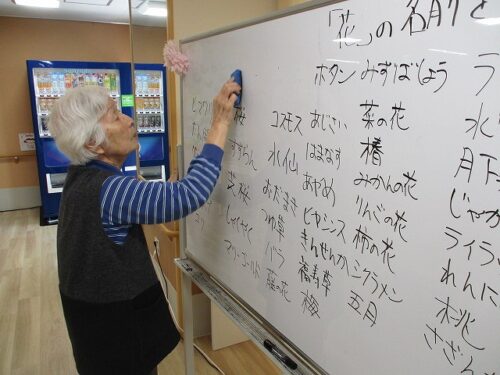 「花」の名前を
ヒマワリ
桜
すずらん
芝桜
しゃくやく
マリーゴールド
コスモス
水仙
おだまき
つゆ草
バラ
藤の花
ボタン
あじさい
はまなす
あやめ
ヒヤシンス
きんせんか
福寿草
梅
みずばしょう
菜の花
椿
みかんの花
りんごの花
柿の花
シクラメン
五月
ラ
水
月下
じゃが
ライラ
れんに
桃
さざん